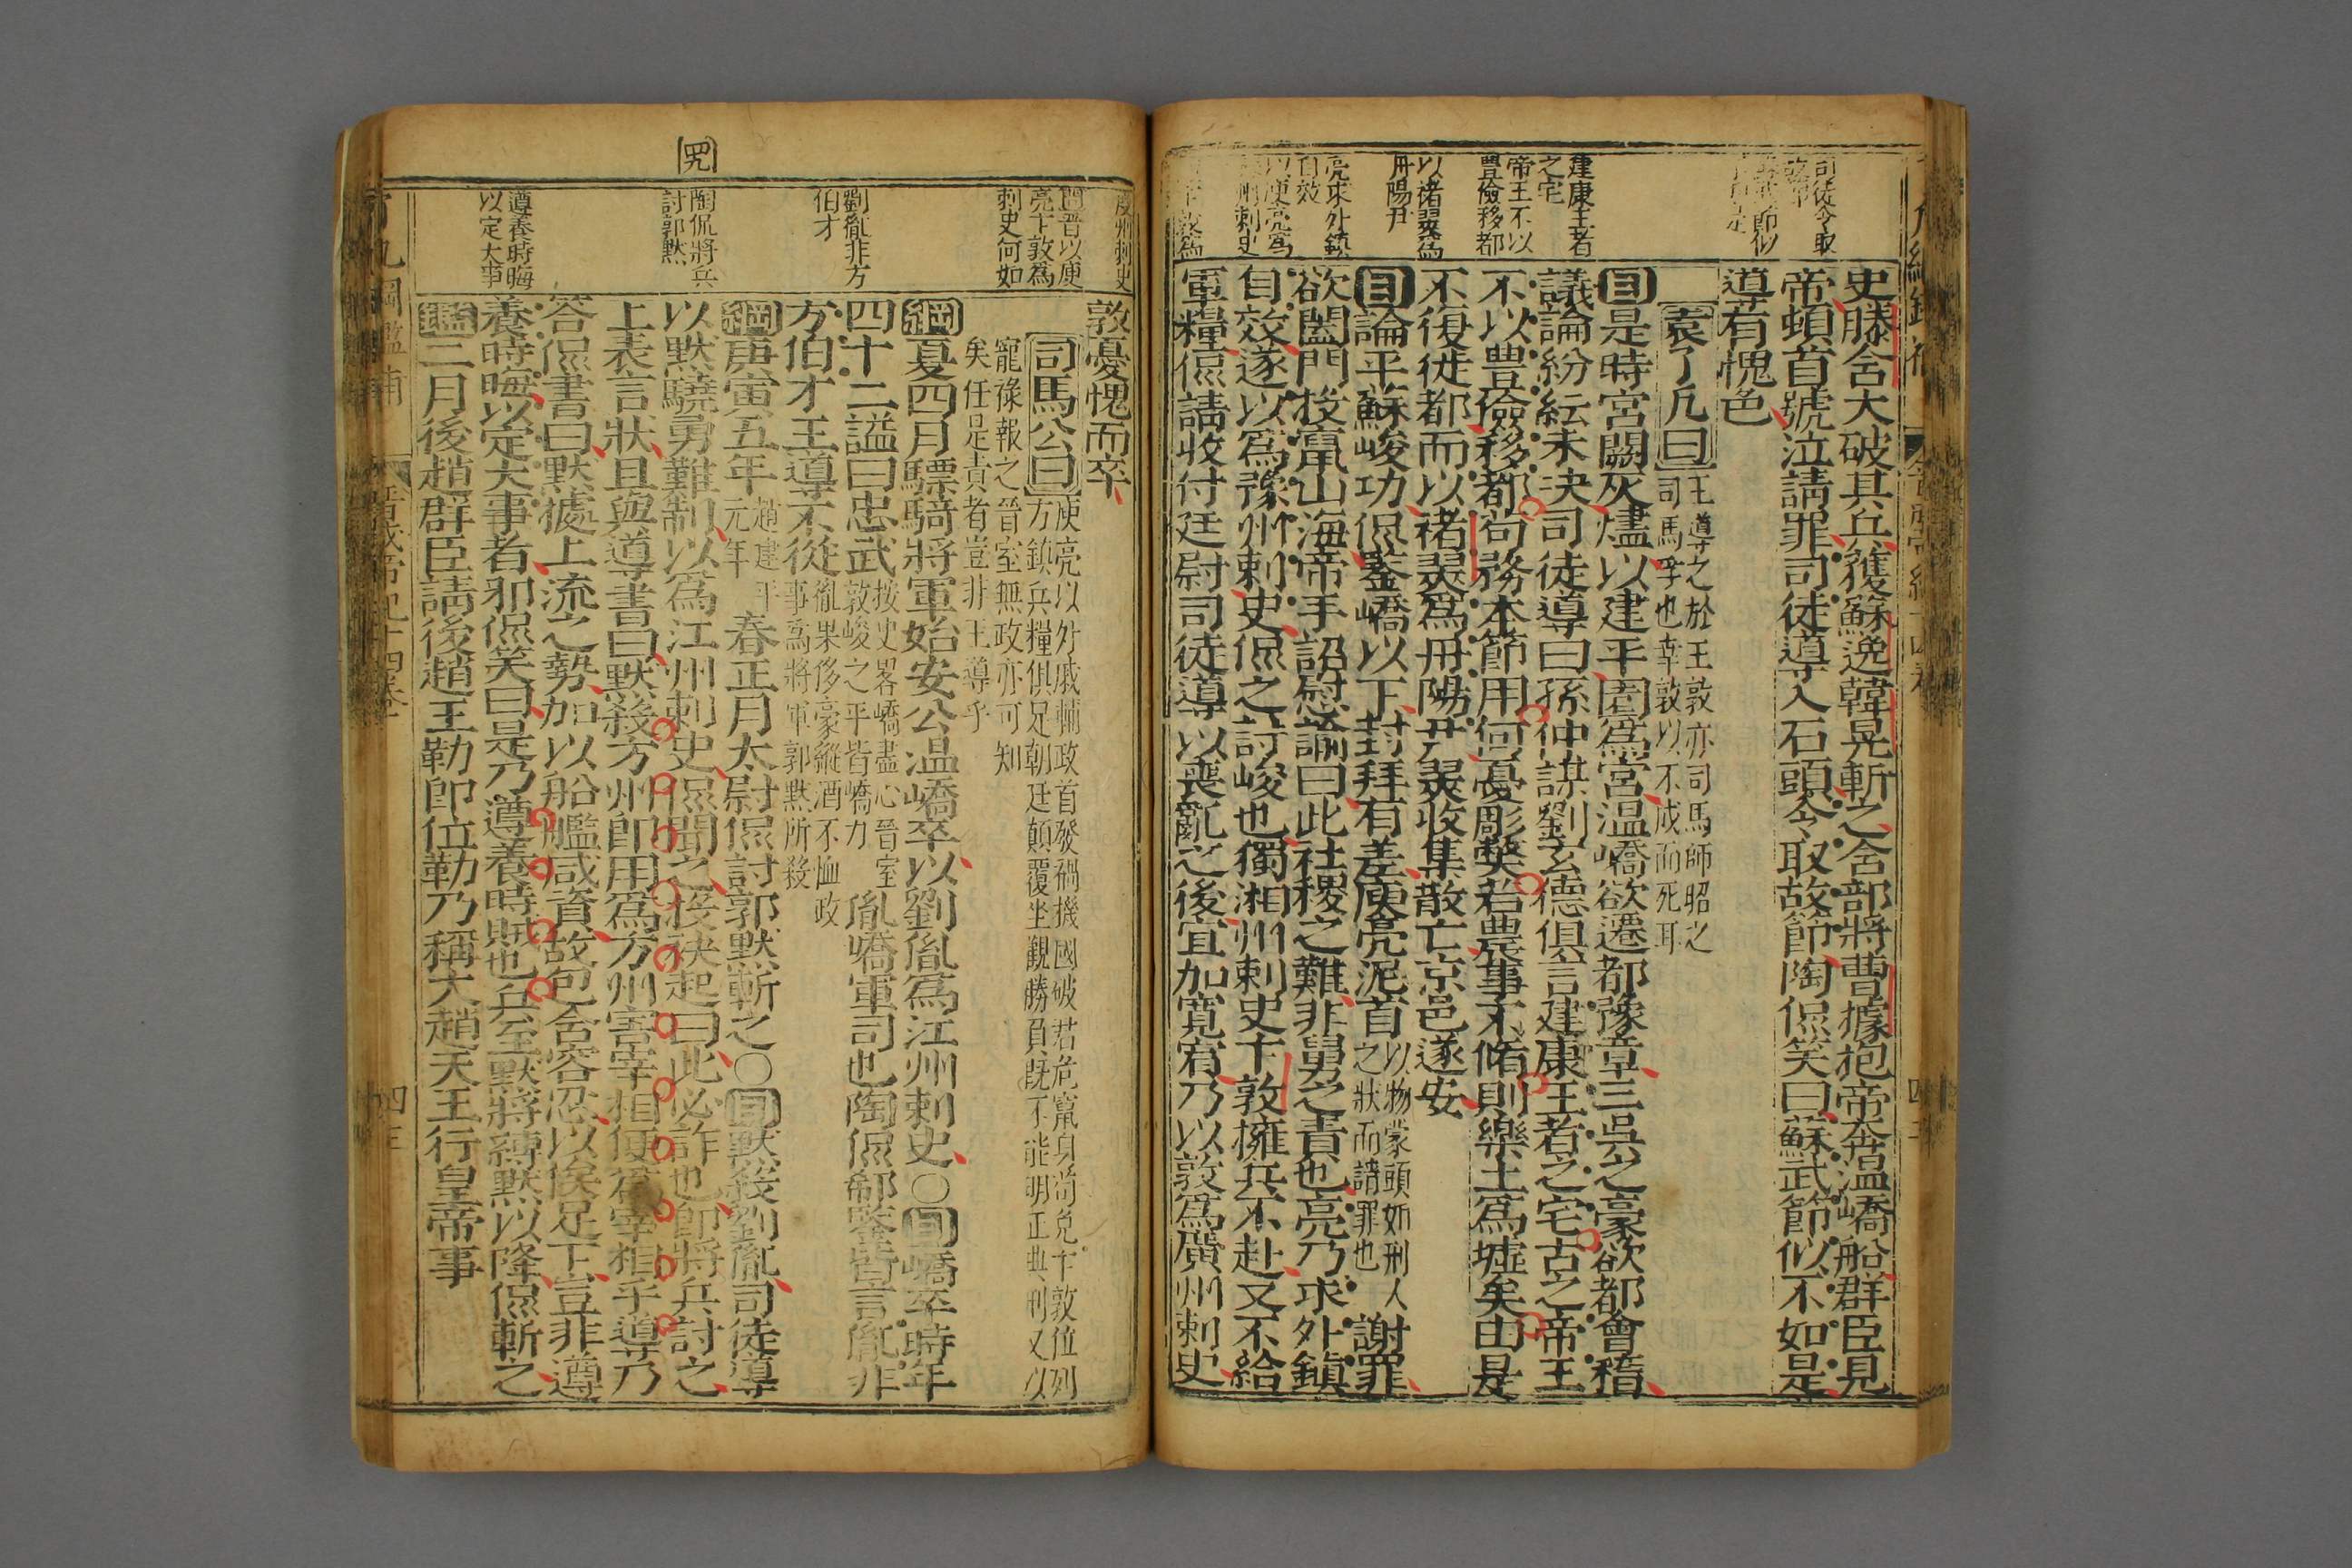 史滕含大破其兵獲蘇逸韓晃斬之含部將曹據抱帝奔溫嶠船群臣見
帝頓首號泣請罪司徒導入石頭令取故節陶侃笑曰蘇武節似不如是
導有愧色
袁了凡曰王導之於王敦亦司馬師昭之
司馬孚也幸敦以不成而死耳
目是時宮闕灰燼以建平園爲宮溫嶠欲遷都豫章三吳之豪欲都會稽
議論紛紜未決司徒導曰孫仲謀劉玄德俱言建康王者之宅古之帝王
不以豊儉移都尚務本節用何憂彫獘若農事不脩則樂土爲墟矣由是
不復徙都而以禇翜爲丹陽尹翜收集散亡京邑遂安
目論平蘇峻功侃鑒嶠以下封拜有差庾亮泥首以物蒙頭如刑人
之狀而請罪也謝罪
欲闔門投竄山海帝手詔慰諭曰此社稷之難非舅之責也亮乃求外鎮
自效遂以爲豫州刺史侃之討峻也獨湘州刺史卞敦擁兵不赴又不給
軍糧侃請收付廷尉司徒導以喪亂之後宜加寬宥乃以敦爲廣州刺史
司徒令取
建康王者
之宅
帝王不以
豊儉移都
以禇翜爲
丹陽尹
亮求外鎮
自效
以庾亮爲
敦憂愧而卒
司馬公曰庾亮以外戚輔政首發禍機國破君危竄身苟免卞敦位列
方鎮兵糧俱足朝廷顛覆坐觀勝負既不能明正典刑又以
寵祿報之晉室無政亦可知
矣任是責者豈非王導乎
綱夏四月驃騎將軍始安公温嶠卒以劉胤爲江州刺史〇目嶠卒時年
四十二謚曰忠武按史畧嶠盡心晉室
敦峻之平皆嶠力胤嶠軍司也陶侃郗鑒皆言胤非
方伯才王導不從胤果侈豪縱酒不恤政
事爲將軍郭默所殺
綱庚寅五年趙建平
元年春正月太尉侃討郭默斬之〇目默殺劉胤司徒導
以默驍勇難制以爲江州刺史侃聞之投袂起曰此必詐也即將兵討之
上表言狀且與導書曰默殺方州即用爲方州害宰相便爲宰相乎導乃
答侃書曰默據上流之勢加以船艦咸資故包含容忍以俟足下豈非遵
養時晦以定大事者邪侃笑曰是乃遵養時賊也兵至默將縛默以降侃斬之
鑑二月後趙群臣請後趙王勒即位勒乃稱大趙天王行皇帝事
廣州刺史
罰晉以庾
亮卞敦爲
刺史何如
劉胤非方
伯才
陶侃將兵
討郭默
遵養時晦
以定大事